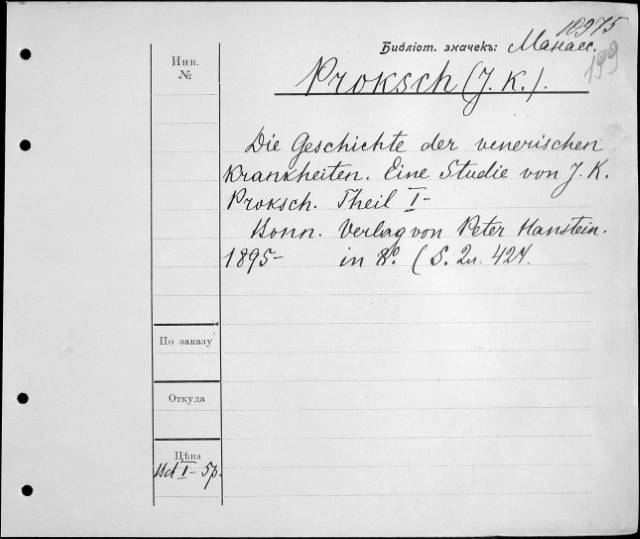 10975
Библіот. значекъ: Манасс.
199
Инв.
№
Proksch (J. K.).
Die Geschichte der venerischen
Krankheiten. Eine Studie von J. K.
Proksch. Theil I-
Bonn. Verlag von Peter Hanstein.
1895- in 8º. (S. 2н. 424.
По заказу
Откуда
Цѣна
Bd I- 5р.